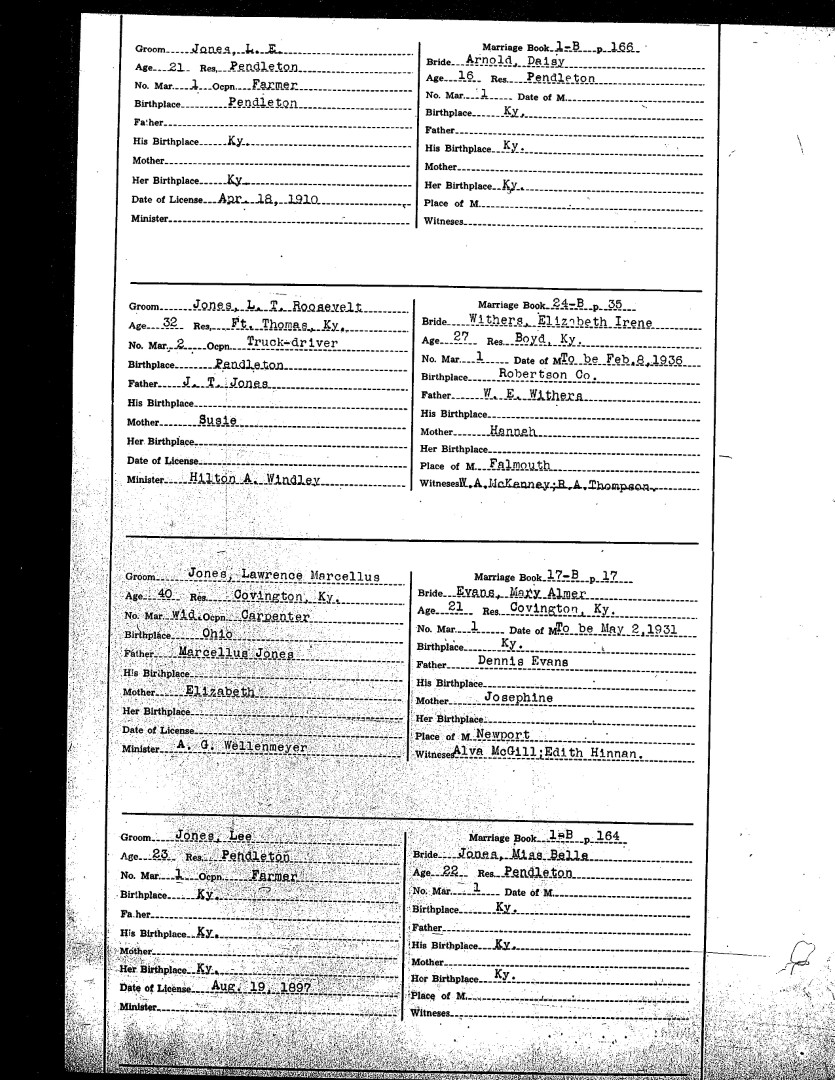 Groom Jones, L. E.
Age 21 Res. Pendleton
No. Mar. 1 Ocpn. Farmer
Birthplace Pendleton
Father
His Birthplace Ky.
Mother
Her Birthplace Ky.
Date of License Apr. 18, 1910
Minister
Marriage Book 1-B p. 166
Bride Arnold, Daisy
Age 16 Res. Pendleton
No. Mar. 1 Date of M.
Birthplace Ky.
Father
His Birthplace Ky.
Mother
Her Birthplace Ky.
Place of M.
Witneses
Groom Jones, L. T. Roosevelt
Age 32 Res. Ft. Thomas, Ky.
No. Mar. 2 Ocpn. Truck-driver
Birthplace Pendleton
Father J. T. Jones
His Birthplace
Mother Susie
Her Birthplace
Date of License
Minister Hilton A. Windley
Marriage Book 24-B p. 35
Bride Withers, Elizabeth Irene
Age 27 Res. Boyd, Ky.
No. Mar. 1 Date of M. To be Feb.8,1936
Birthplace Robertson Co.
Father W. E. Withers
His Birthplace
Mother Hannah
Her Birthplace
Place of M. Falmouth
Witneses W.A.McKenney;R.A.Thompson.
Groom Jones, Lawrence Marcellus
Age 40 Res. Covington, Ky.
No. Mar. Wid. Ocpn. Carpenter
Birthplace Ohio
Father Marcellus Jones
His Birthplace
Mother Elizabeth
Her Birthplace
Date of License
Minister A. G. Wellenmeyer
Marriage Book 17-B p. 17
Bride Evans, Mary Almer
Age 21 Res. Covington, Ky.
No. Mar. 1 Date of M. To be May 2,1931
Birthplace Ky.
Father Dennis Evans
His Birthplace
Mother Josephine
Her Birthplace
Place of M. Newport
Witneses Alva McGill;Edith Hinnan.
Groom Jones, Lee
Age 23 Res. Pendleton
No. Mar. 1 Ocpn. Farmer
Birthplace Ky.
Father
His Birthplace Ky.
Mother
Her Birthplace Ky.
Date of License Aug. 19, 1897
Minister
Marriage Book 1-B p. 164
Bride Jones, Miss Belle
Age 22 Res. Pendleton
No. Mar. 1 Date of M.
Birthplace Ky.
Father
His Birthplace Ky.
Mother
Her Birthplace Ky.
Place of M.
Witneses